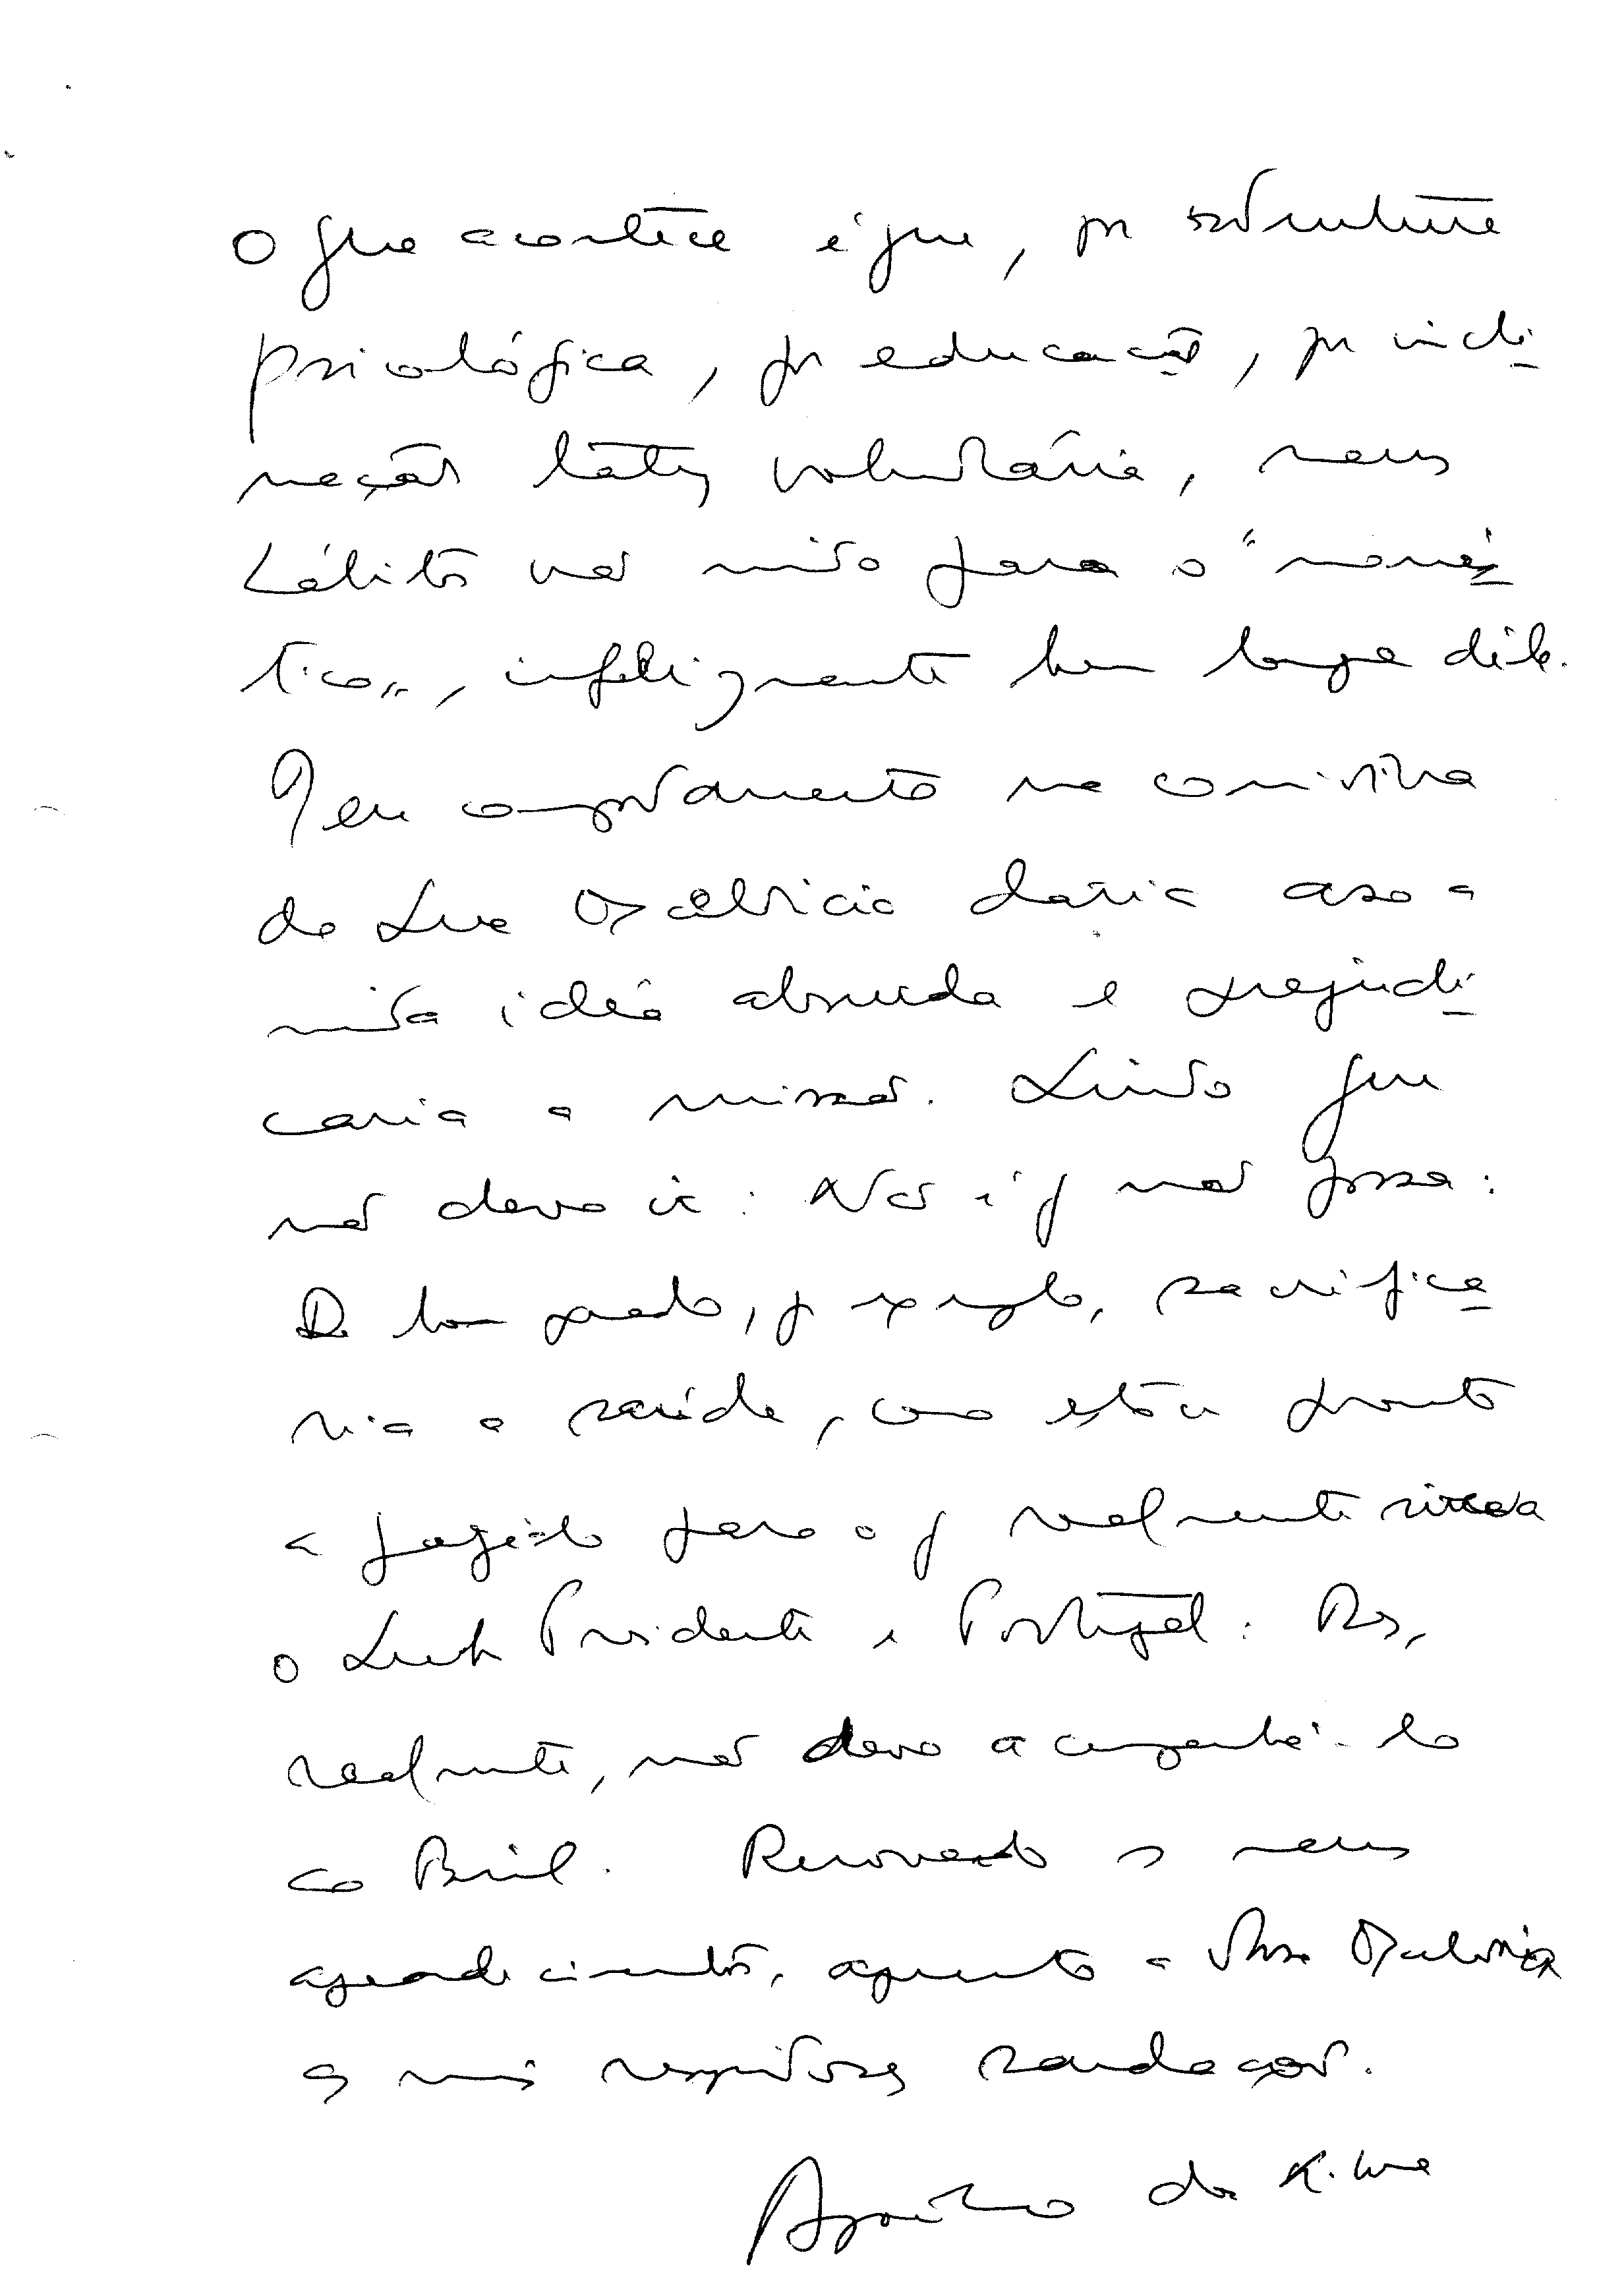 O que acontece é que, por estrutura
psicológica, por educação, por incli-
nação até voluntária, meus
hábitos vão muito para o "monás-
tico", infelizmente bem longe dele.
Meu comportamento na comitiva
de Sua Excelência daria aso a
muita ideia absurda e prejudi-
caria a missão. Sinto que
não devo ir: Não é q não possa:
De bom grado, por exemplo, sacrifica-
ria a saúde, como estou pronto
a fazê-lo para o q realmente sirva
o Senhor Presidente e Portugal: Mas,
realmente, não devo acompanhá-lo
ao Brasil. Renovando os meus
agradecimentos, apresento a Vossa Excelência
as mais respeitosas saudações.
Agostinho da Silva